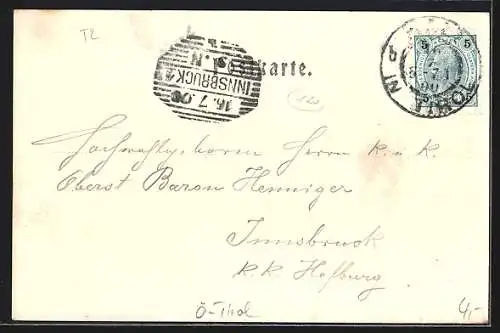 T2
Postkarte.
INNSBRUCK 2
16.7.00
5 5
IN TIROL
120
Hochwohlgeboren Herrn k. u. k.
Oberst Baron Henniger
Innsbruck
k. k. Hofburg
Ö-Tirol
4,-